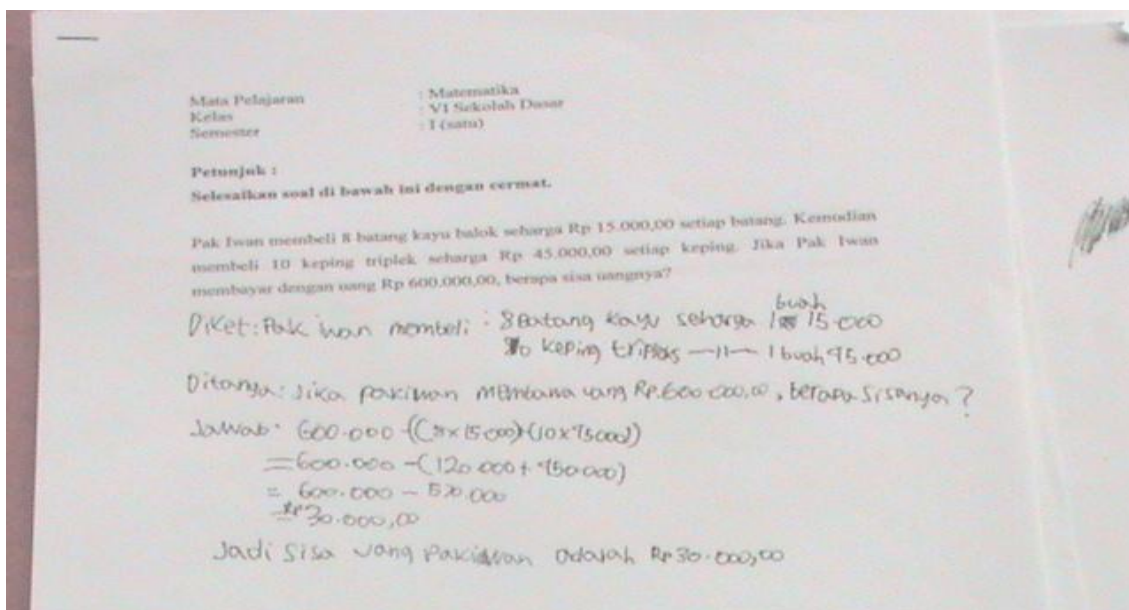 Mata Pelajaran : Matematika
Kelas : VI Sekolah Dasar
Semester : I (satu)
Petunjuk :
Selesaikan soal di bawah ini dengan cermat.
Pak Iwan membeli 8 batang kayu balok seharga Rp 15.000,00 setiap batang. Kemudian
membeli 10 keping triplek seharga Rp 45.000,00 setiap keping. Jika Pak Iwan
membayar dengan uang Rp 600.000,00, berapa sisa uangnya?
Diket : Pak iwan membeli : 8 Batang kayu seharga 1 buah 15.000
10 keping triplek —11— 1 buah 45.000
Ditanya : Jika pak iwan membawa uang Rp.600.000,00, berapa sisanya ?
Jawab : 600.000 - ((8 x 15.000) + (10 x 45000))
= 600.000 - (120.000 + 450000)
= 600.000 - 570.000
= Rp 30.000,00
Jadi sisa uang Pak iwan adalah Rp 30.000,00